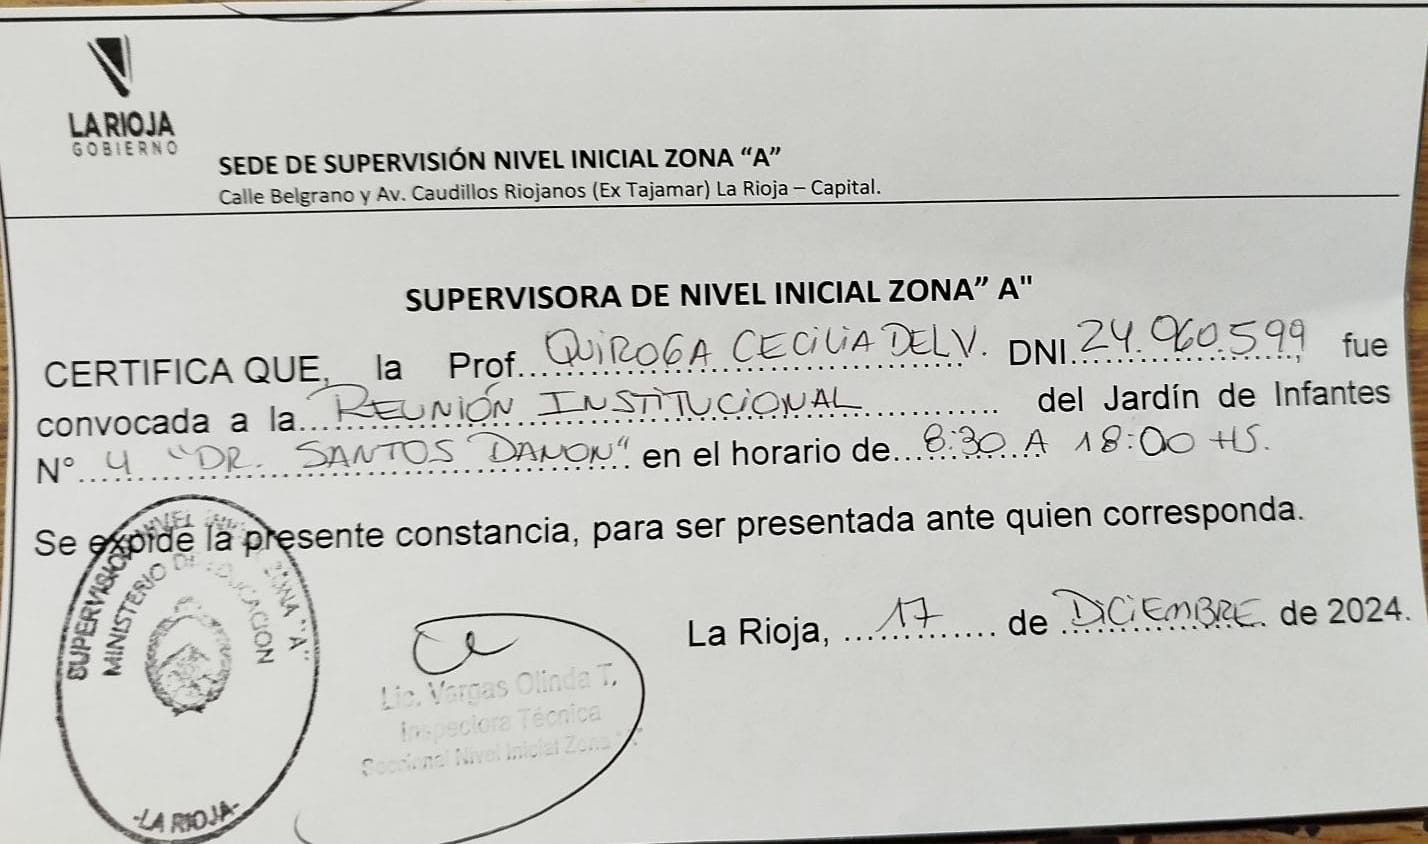 LA RIOJA
GOBIERNO
SEDE DE SUPERVISIÓN NIVEL INICIAL ZONA “A”
Calle Belgrano y Av. Caudillos Riojanos (Ex Tajamar) La Rioja – Capital.
SUPERVISORA DE NIVEL INICIAL ZONA” A"
CERTIFICA QUE, la Prof... QUIROGA CECILIA DEL V. DNI 24.060.599 fue
convocada a la... REUNIÓN INSTITUCIONAL ... del Jardín de Infantes
N° 4 “DR. SANTOS DAMON” en el horario de... 8:30 A 18:00 HS.
Se expide la presente constancia, para ser presentada ante quien corresponda.
La Rioja, 17 de DICIEMBRE de 2024.
SUPERVISIÓN NIVEL ZONA "A"
MINISTERIO DE EDUCACION
-LA RIOJA-
Lic. Vargas Olinda T.
Inspectora Técnica
Seccional Nivel Inicial Zona